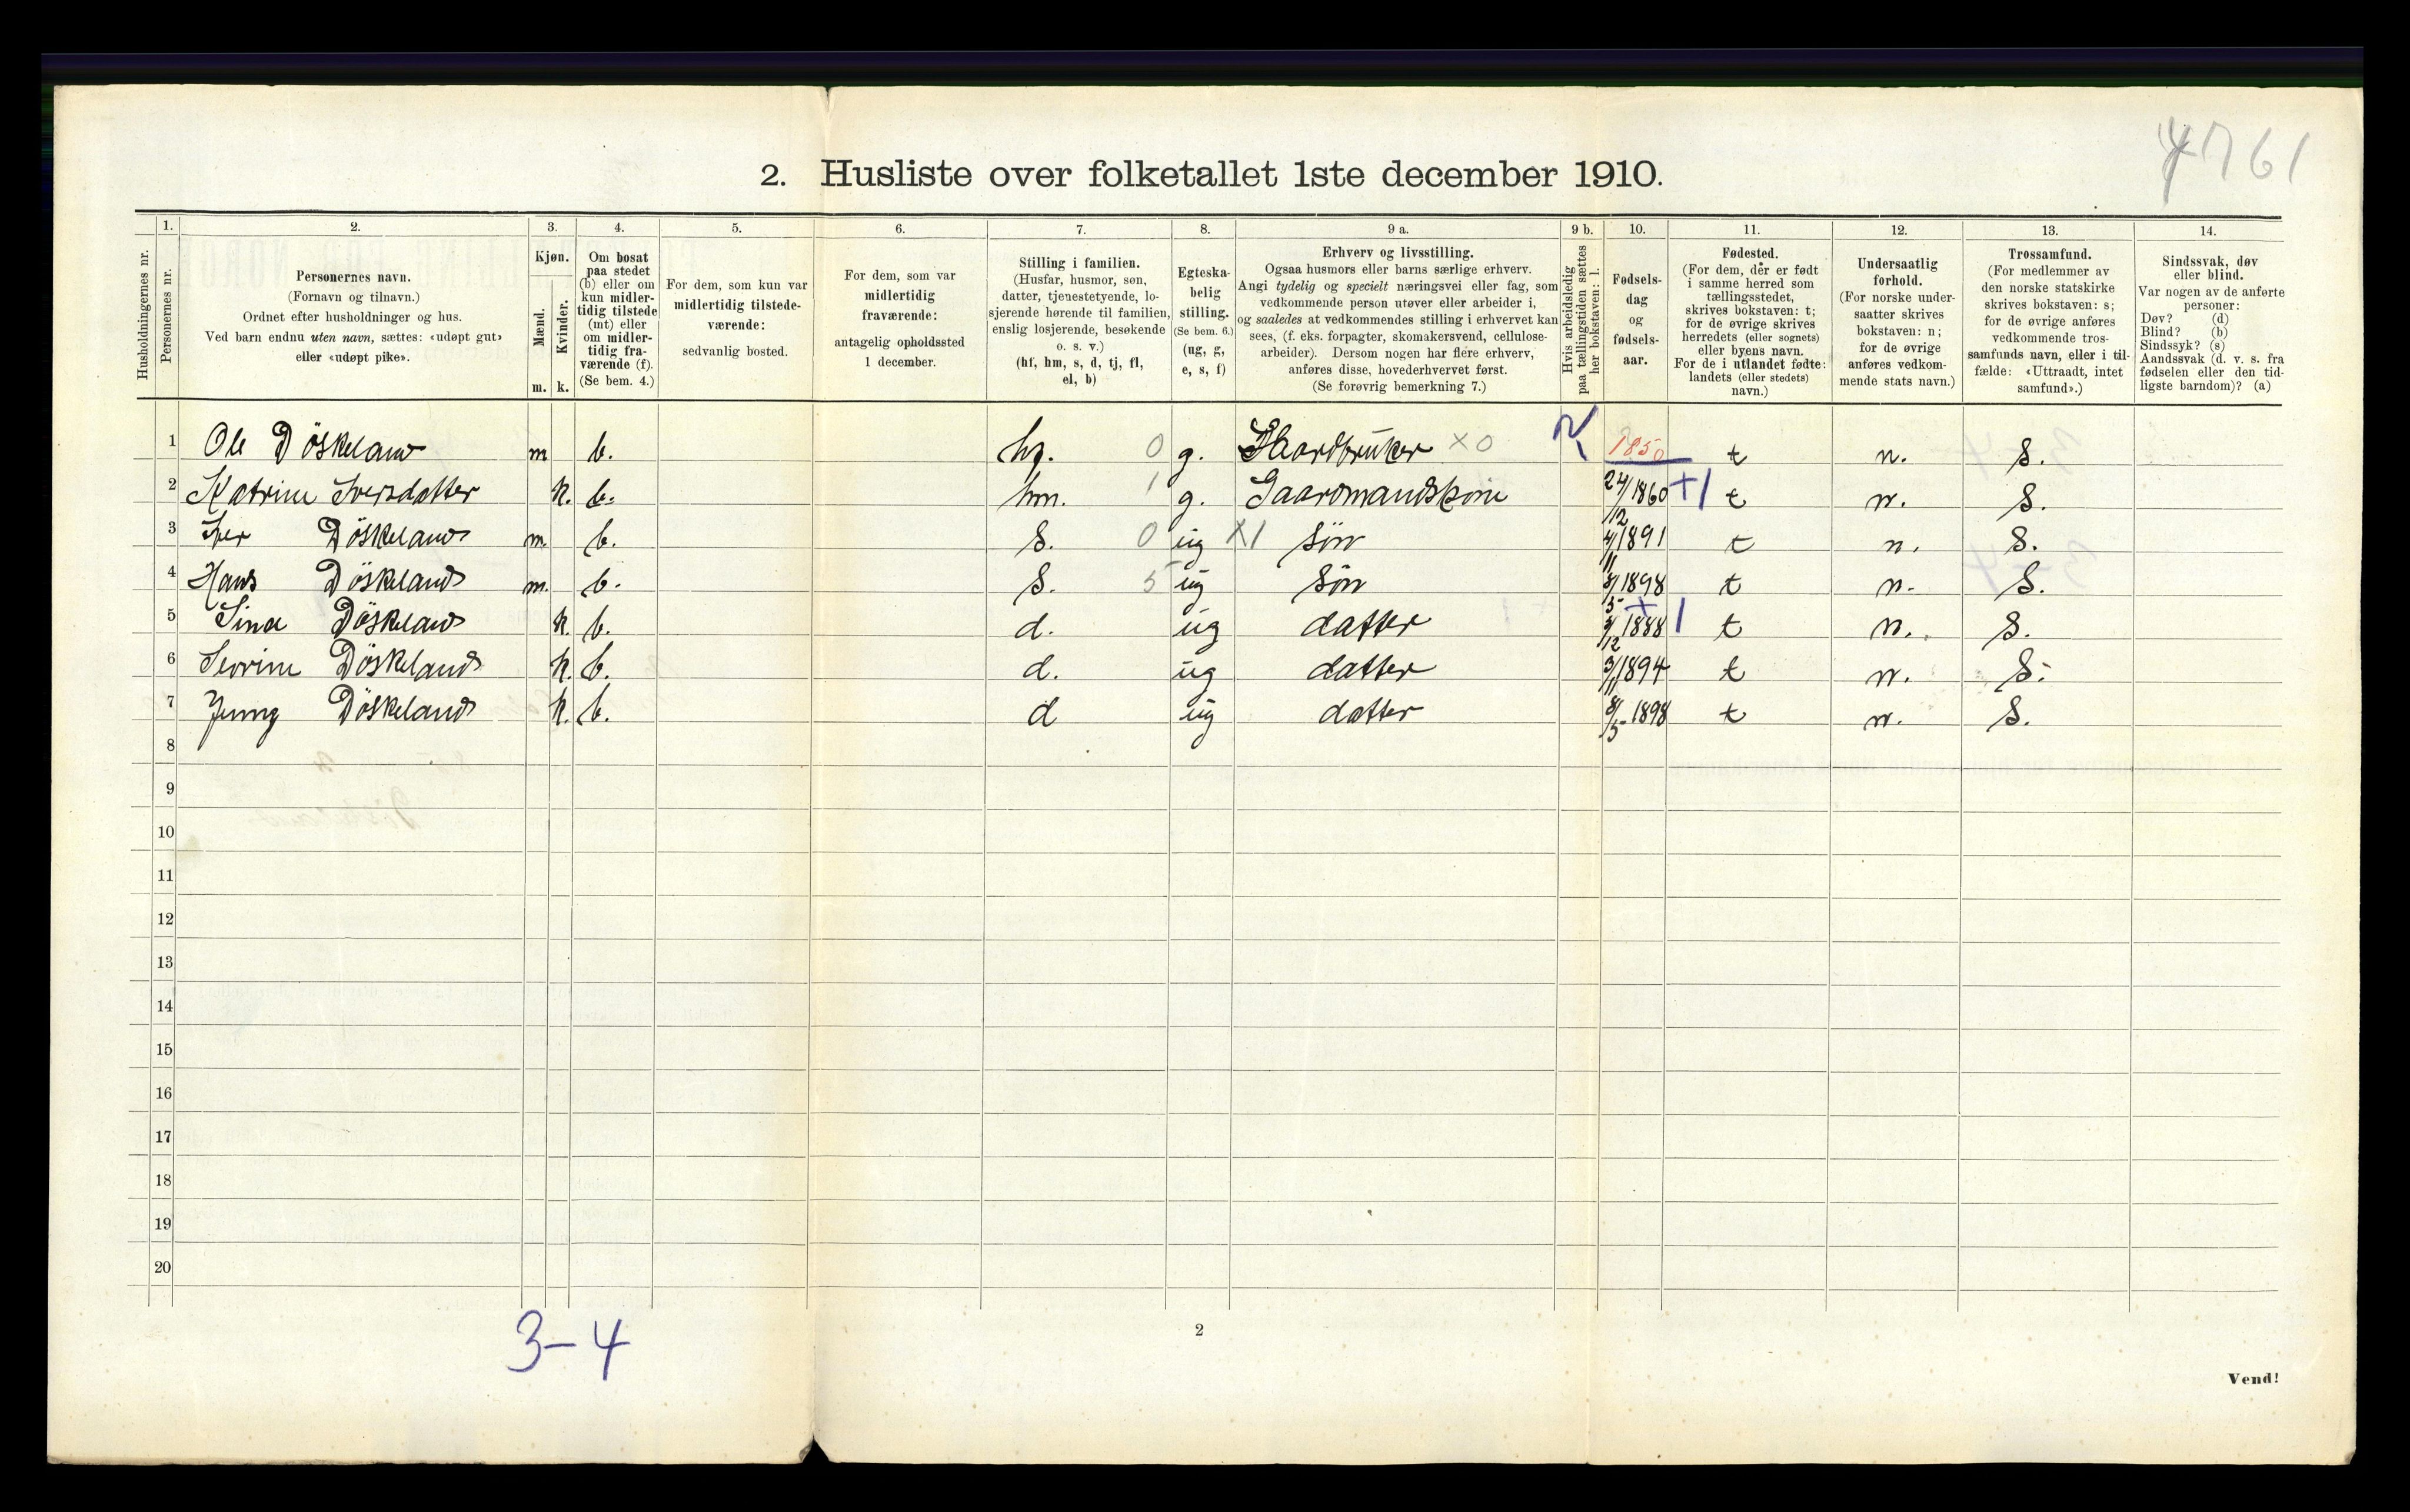 7761
2. Husliste over folketallet 1ste december 1910.
Husholdningernes nr.
1. Personernes nr.
2. Personernes navn. (Fornavn og tilnavn.) Ordnet efter husholdninger og hus. Ved barn endnu uten navn, sættes: «udøpt gut» eller «udøpt pike».
3. Kjøn. Mænd. m. Kvinder. k.
4. Om bosat paa stedet (b) eller om kun midlertidig tilstede (mt) eller om midlertidig fraværende (f). (Se bem. 4.)
5. For dem, som kun var midlertidig tilstedeværende: sedvanlig bosted.
6. For dem, som var midlertidig fraværende: antagelig opholdssted 1 december.
7. Stilling i familien. (Husfar, husmor, søn, datter, tjenestetyende, losjerende hørende til familien, enslig losjerende, besøkende o. s. v.) (hf, hm, s, d, tj, fl, el, b)
8. Egteskabelig stilling. (Se bem. 6.) (ug, g, e, s, f)
9 a. Erhverv og livsstilling. Ogsaa husmors eller barns særlige erhverv. Angi tydelig og specielt næringsvei eller fag, som vedkommende person utøver eller arbeider i, og saaledes at vedkommendes stilling i erhvervet kan sees, (f. eks. forpagter, skomakersvend, cellulosearbeider). Dersom nogen har flere erhverv, anføres disse, hovederhvervet først. (Se forøvrig bemerkning 7.)
9 b. Hvis arbeidsledig paa tællingstiden sættes her bokstaven: l.
10. Fødselsdag og fødselsaar.
11. Fødested. (For dem, der er født i samme herred som tællingsstedet, skrives bokstaven: t; for de øvrige skrives herredets (eller sognets) eller byens navn. For de i utlandet fødte: landets (eller stedets) navn.)
12. Undersaatlig forhold. (For norske undersaatter skrives bokstaven: n; for de øvrige anføres vedkommende stats navn.)
13. Trossamfund. (For medlemmer av den norske statskirke skrives bokstaven: s; for de øvrige anføres vedkommende trossamfunds navn, eller i tilfælde: «Uttraadt, intet samfund».)
14. Sindssvak, døv eller blind. Var nogen av de anførte personer: Døv? (d) Blind? (b) Sindssyk? (s) Aandssvak (d. v. s. fra fødselen eller den tidligste barndom)? (a)
1 Ole Döskeland m b. hf. 0 g. Gaardbruker x0 1850 t n. S.
2 Katrine Iversdatter k. b. hm. 1 g. Gaardmandskone 24/12 1860 +1 t n. S.
3 Iver Döskeland m. b. S. 0 ug x1 sön 4/11 1891 t n. S.
4 Hans Döskeland m. b. S. 5 ug Sön 8/5 1898 t n. S.
5 Sina Döskeland k. b. d. ug datter 1888 +1 t n. S.
6 Severine Döskeland k. b. d. ug datter 3/11 1894 t n. S.
7 Döskeland k. b. d ug datter 8/5 1898 t n. S.
8
9
10
11
12
13
14
15
16
17
18
19
20
3-4
2
Vend!